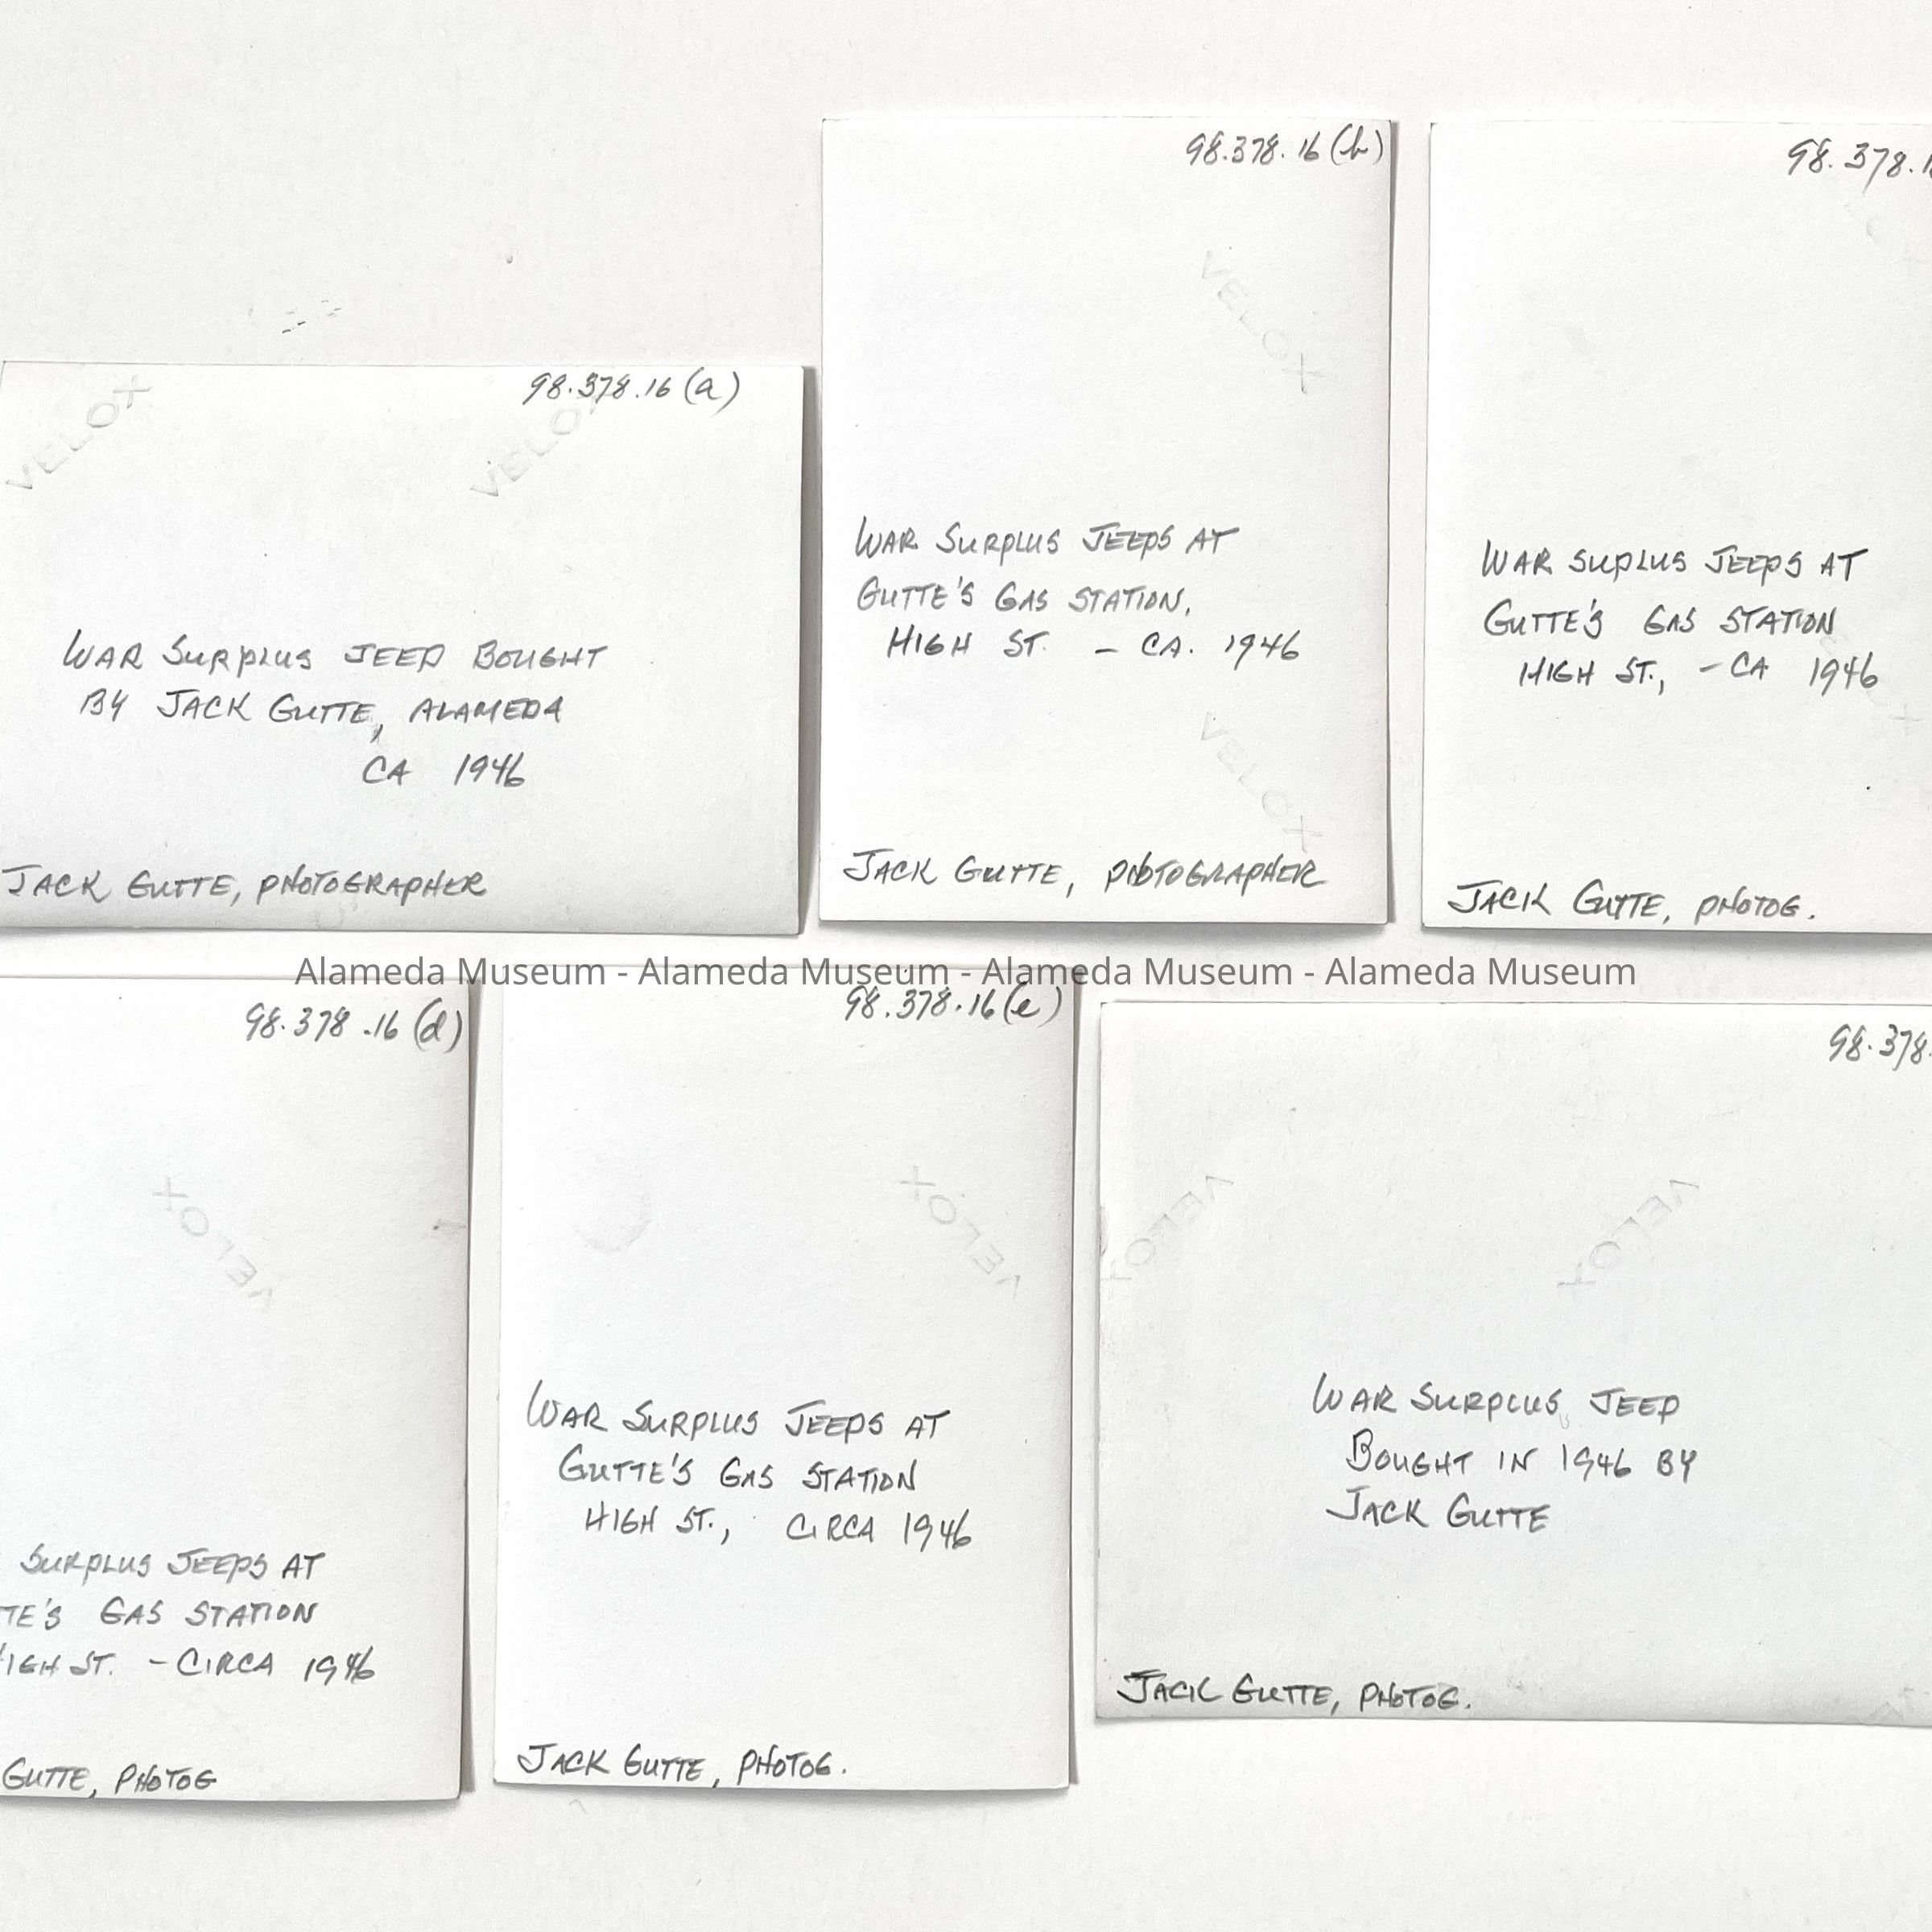 98.378.16 (a)
VELOX
VELOX
WAR SURPLUS JEEP BOUGHT
BY JACK GUTTE, ALAMEDA
CA 1946
JACK GUTTE, PHOTOGRAPHER
98.378.16 (b)
VELOX
WAR SURPLUS JEEPS AT
GUTTE'S GAS STATION,
HIGH ST. - CA. 1946
VELOX
JACK GUTTE, PHOTOGRAPHER
98.378.1
WAR SUPLUS JEEPS AT
GUTTE'S GAS STATION
HIGH ST., - CA 1946
JACK GUTTE, PHOTOG.
Alameda Museum - Alameda Museum - Alameda Museum - Alameda Museum
98.378.16 (d)
VELOX
SURPLUS JEEPS AT
TTE'S GAS STATION
HIGH ST. - CIRCA 1946
GUTTE, PHOTOG
98.378.16 (e)
VELOX
WAR SURPLUS JEEPS AT
GUTTE'S GAS STATION
HIGH ST., CIRCA 1946
JACK GUTTE, PHOTOG.
98.378.
VELOX
VELOX
WAR SURPLUS JEEP
BOUGHT IN 1946 BY
JACK GUTTE
JACK GUTTE, PHOTOG.